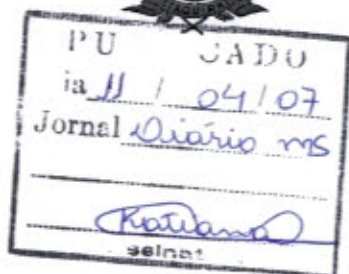 PU CADO
ia 11 / 04 / 07
Jornal Diário MS
Katiana